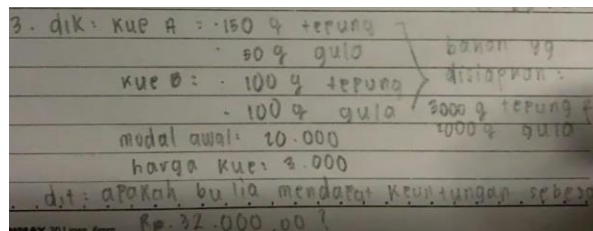 3. dik: kue A : - 150 g tepung
- 50 g gula
bahan yg
kue B : - 100 g tepung
disiapkan :
- 100 g gula
3000 g tepung
2000 g gula
modal awal: 20.000
harga kue: 3.000
dit: apakah bu lia mendapat keuntungan sebesa
Rp. 32.000,00 ?